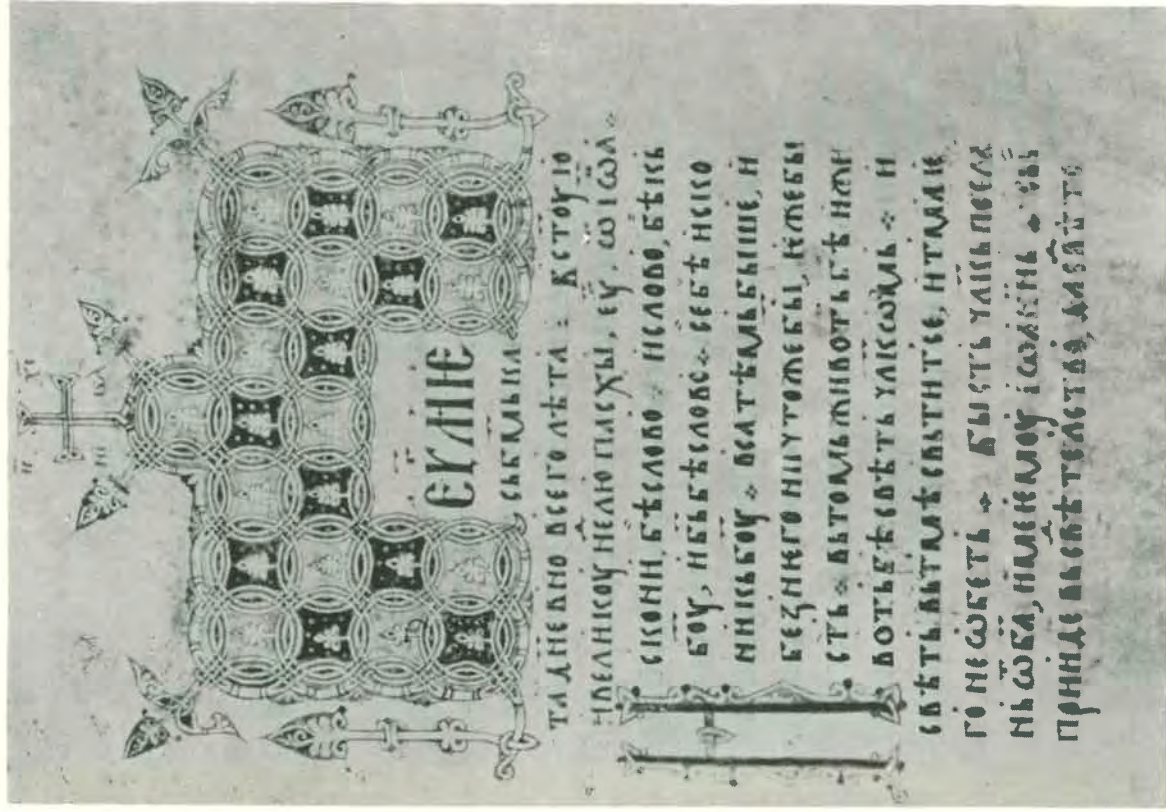 ЕУ҃ЛИѤ
ТА ДН҃ЕВНО ВСЕГО ЛѢТА ⁘ В СТ҃ОУЮ
НЕ҃ЛЮ ПАСХЫ, ЕУ҃. Ѿ ІѠА ⁘
ИСКОНИ, БѢ СЛОВО · И СЛОВО, БѢ КЬ
БОУ҃, И БЬ҃ БѢ СЛОВО ⁘ СЕ БѢ ИСКО
НИ КЬ БОУ҃ ⁘ ВСА ТѢМЬ БЫШЕ, И
БЕЗ НѤГО НИЧТОЖЕ БЫ, ѤЖЕ БЫ
СТЬ ⁘ ВЬ ТОМЬ ЖИВОТЬ БѢ И ЖИ
ВОТЬ БѢ СВѢТЬ ЧЛ҃КѠМЬ ⁘ И
СВѢТЬ ВЬ ТМѢ СВЬТИТ СЕ, И ТМА Ѥ
ГО НЕ ѠБЕТЬ ⁘ БЫСТЬ ЧЛ҃КЬ ПОСЛА
НЬ Ѿ БА҃, ИМЕ ѤМОУ ІѠАННЬ ⁘ СЬ
ПРИИДЕ ВЬ СВѢТѢЛСТВО, ДА СВѢТЕ